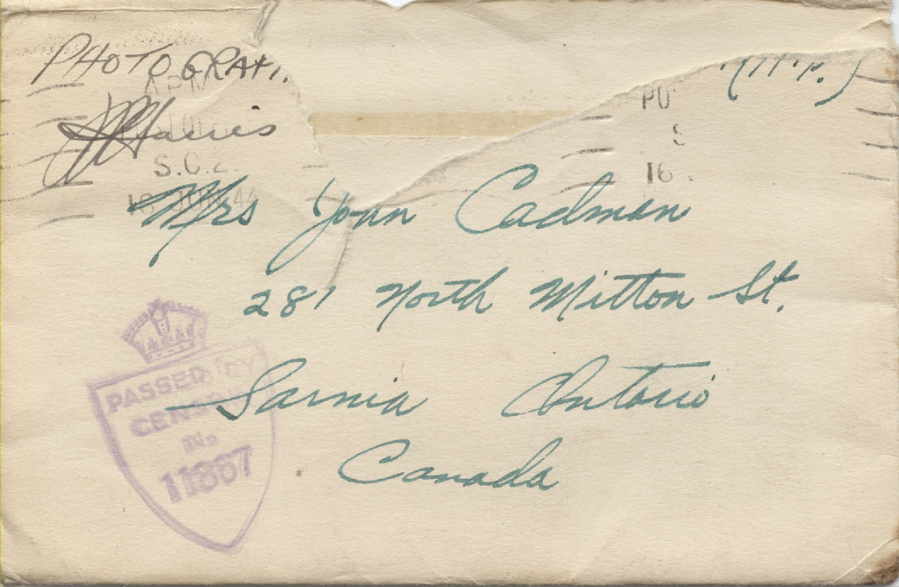 PHOTOGRAPH
(H.P.)
A.P.
PO
S.C.2.
16
16 JUN 44
Mrs John Cadman
281 North Mitton St.
Sarnia Ontario
Canada
PASSED BY
CENSOR
No
11867